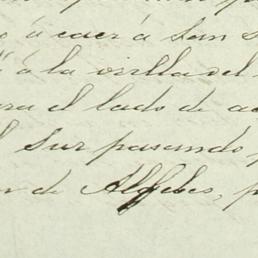 o á caer á San S
á la orilla del
ra el lado de a
l Sur pasando
r de Algibes, p